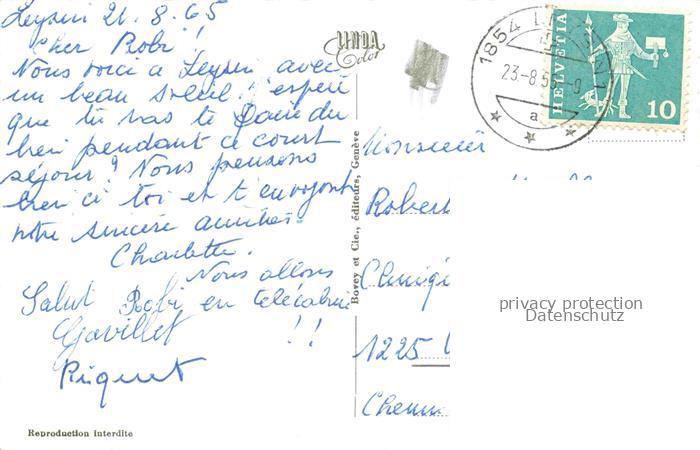 Leysin 21.8.65
Cher Robi!
Nous voici à Leysin avec
un beau soleil. J'espère
que tu vas te
bien pendant ce court
séjour? Nous pensons
bien à toi et t'envoyons
notre sincère amitiés.
Charlotte.
Nous allons
Salut Robi en télécabine
Gavillet !!
Riquet
Reproduction interdite
LINDA
Color
Bovey et Cie., éditeurs, Genève
1854
23-8.65-9
a
HELVETIA
10
Monsieur
Robert
1225
privacy protection
Datenschutz